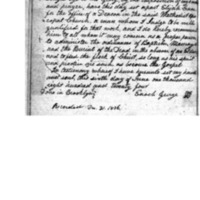 and prayer, have this day set apart
for the Office of a Deacon in the said Methodist
Episcopal Church, a man whom I judge to be well
qualified for that work, and I do hereby recommend
him to all whom it may concern as a proper person
to administer the ordinance of Baptism, Marriage
and the Burial of the Dead in the absence of an Elder
and to feed the flock of Christ, so long as his spirit
and practice are such as become the Gospel
In testimony whereof I have hereunto set my hand
and seal, this sixth day of June one thousand
eight hundred and twenty four
Done in Brooklyn Enoch George
Recorded Dec 21